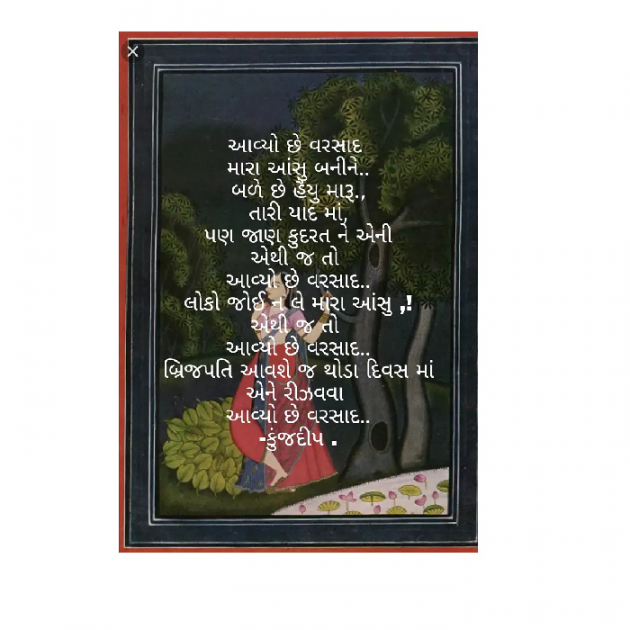 આવ્યો છે વરસાદ
મારા આંસુ બનીને..
બળે છે હૈયુ મારૂ.,
તારી યાદ માં,
પણ જાણ કુદરત ને એની
એથી જ તો
આવ્યો છે વરસાદ..
લોકો જોઈ ન લે મારા આંસુ ,!
એથી જ તો
આવ્યો છે વરસાદ..
બ્રિજપતિ આવશે જ થોડા દિવસ માં
એને રીઝવવા
આવ્યો છે વરસાદ..
-કુંજદીપ .